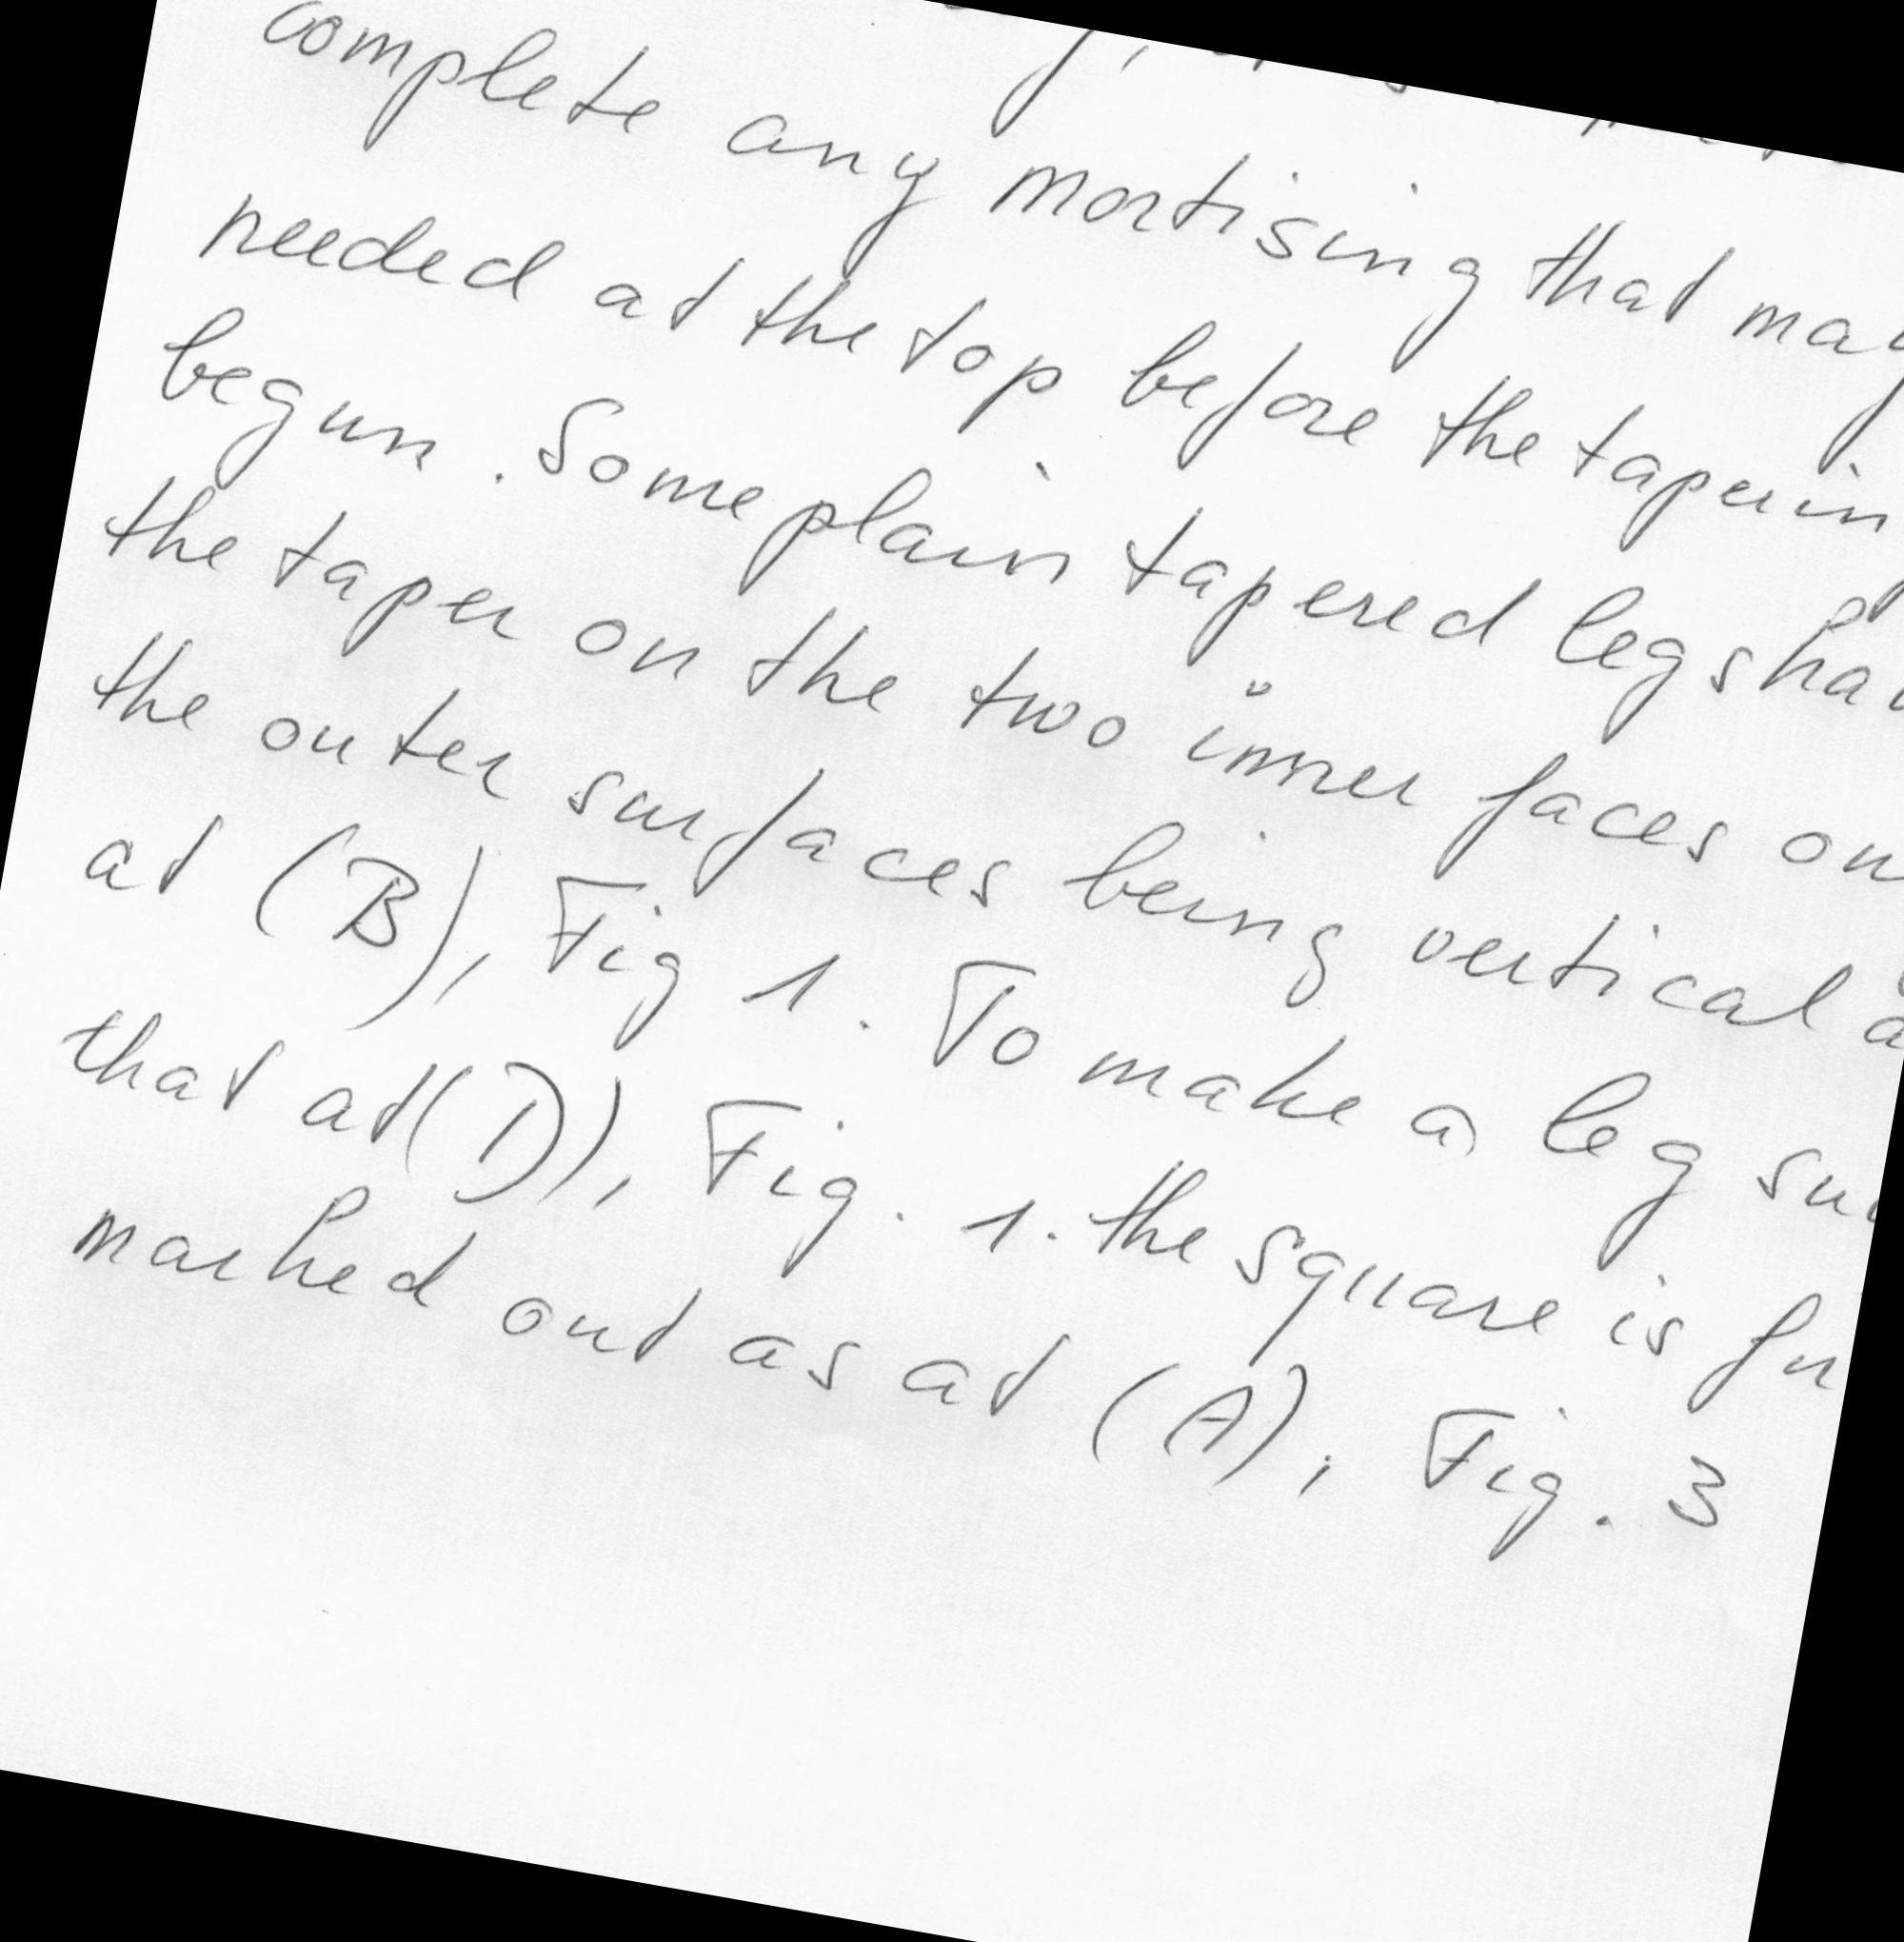 complete any mortising that may
needed at the top before the taperin
begun. Some plain tapered legs ha
the taper on the two inner faces on
the outer surfaces being vertical a
at (B), Fig 1. To make a leg su
that at (D), Fig. 1. the square is
marked out as at (A), Fig. 3